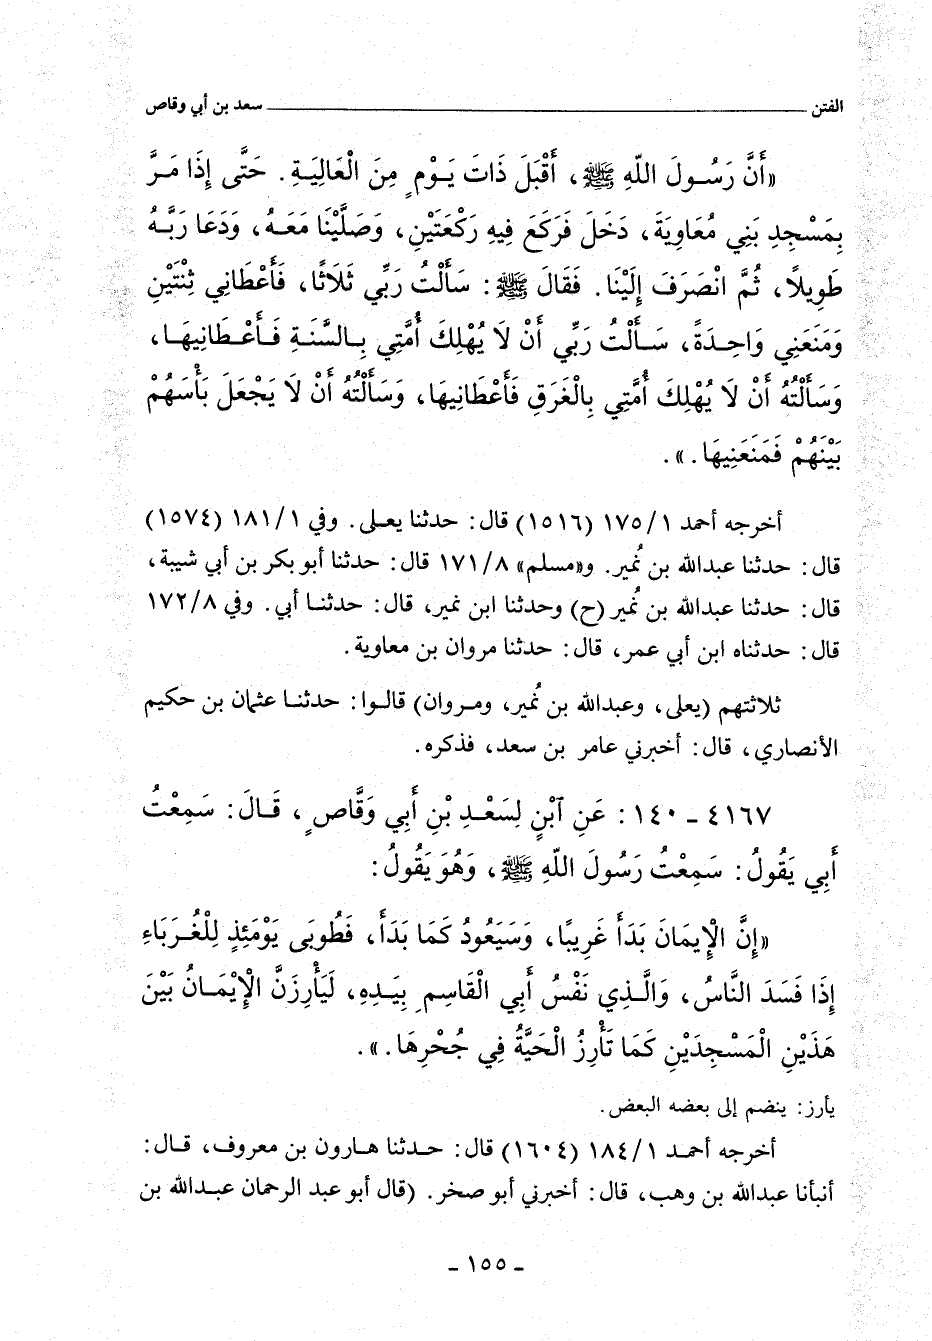 الفتن ــــــــــ سعد بن أبي وقاص
«أَنَّ رَسُولَ اللّهِ ﷺ، أَقْبَلَ ذَاتَ يَوْمٍ مِنَ الْعَالِيَةِ. حَتَّى إِذَا مَرَّ
بِمَسْجِدِ بَنِي مُعَاوِيَةَ، دَخَلَ فَرَكَعَ فِيهِ رَكْعَتَيْنِ، وَصَلَّيْنَا مَعَهُ، وَدَعَا رَبَّهُ
طَوِيلاً، ثُمَّ انْصَرَفَ إِلَيْنَا. فَقَالَ ﷺ: سَأَلْتُ رَبِّي ثَلَاثًا، فَأَعْطَانِي ثِنْتَيْنِ
وَمَنَعَنِي وَاحِدَةً، سَأَلْتُ رَبِّي أَنْ لَا يُهْلِكَ أُمَّتِي بِالسَّنَةِ فَأَعْطَانِيهَا،
وَسَأَلْتُهُ أَنْ لَا يُهْلِكَ أُمَّتِي بِالْغَرَقِ فَأَعْطَانِيهَا، وَسَأَلْتُهُ أَنْ لَا يَجْعَلَ بَأْسَهُمْ
بَيْنَهُمْ فَمَنَعَنِيهَا.».
أخرجه أحمد ١/١٧٥ (١٥١٦) قال: حدثنا يعلى. وفي ١/١٨١ (١٥٧٤)
قال: حدثنا عبدالله بن نُمير. و«مسلم» ٨/١٧١ قال: حدثنا أبو بكر بن أبي شيبة،
قال: حدثنا عبدالله بن نُمير (ح) وحدثنا ابن نمير، قال: حدثنا أبي. وفي ٨/١٧٢
قال: حدثناه ابن أبي عمر، قال: حدثنا مروان بن معاوية.
ثلاثتهم (يعلى، وعبدالله بن نُمير، ومروان) قالوا: حدثنا عثمان بن حكيم
الأنصاري، قال: أخبرني عامر بن سعد، فذكره.
٤١٦٧ ـ ١٤٠: عَنِ ٱبْنٍ لِسَعْدِ بْنِ أَبِي وَقَّاصٍ، قَالَ: سَمِعْتُ
أَبِي يَقُولُ: سَمِعْتُ رَسُولَ اللّهِ ﷺ، وَهُوَ يَقُولُ:
«إِنَّ الْإِيمَانَ بَدَأَ غَرِيبًا، وَسَيَعُودُ كَمَا بَدَأَ، فَطُوبَى يَوْمَئِذٍ لِلْغُرَبَاءِ
إِذَا فَسَدَ النَّاسُ، وَالَّذِي نَفْسُ أَبِي الْقَاسِمِ بِيَدِهِ، لَيَأْرِزَنَّ الْإِيْمَانُ بَيْنَ
هَذَيْنِ الْمَسْجِدَيْنِ كَمَا تَأْرِزُ الْحَيَّةُ فِي جُحْرِهَا.».
يأرز: ينضم إلى بعضه البعض.
أخرجه أحمد ١/١٨٤ (١٦٠٤) قال: حدثنا هارون بن معروف، قال:
أنبأنا عبدالله بن وهب، قال: أخبرني أبو صخر. (قال أبو عبد الرحمان عبدالله بن
ـ ١٥٥ ـ